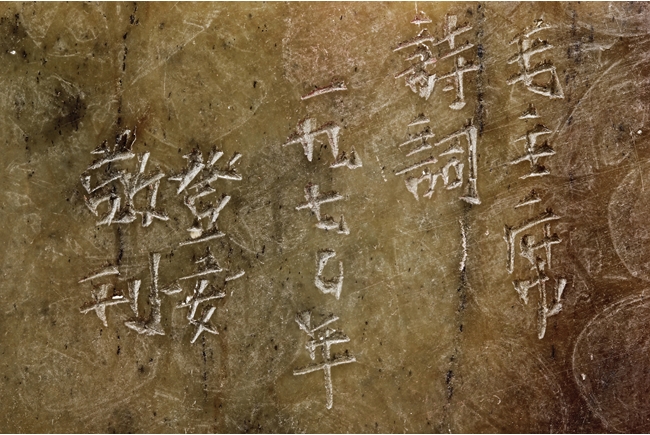 毛主席
詩詞
一九七〇年
登安
敬刊